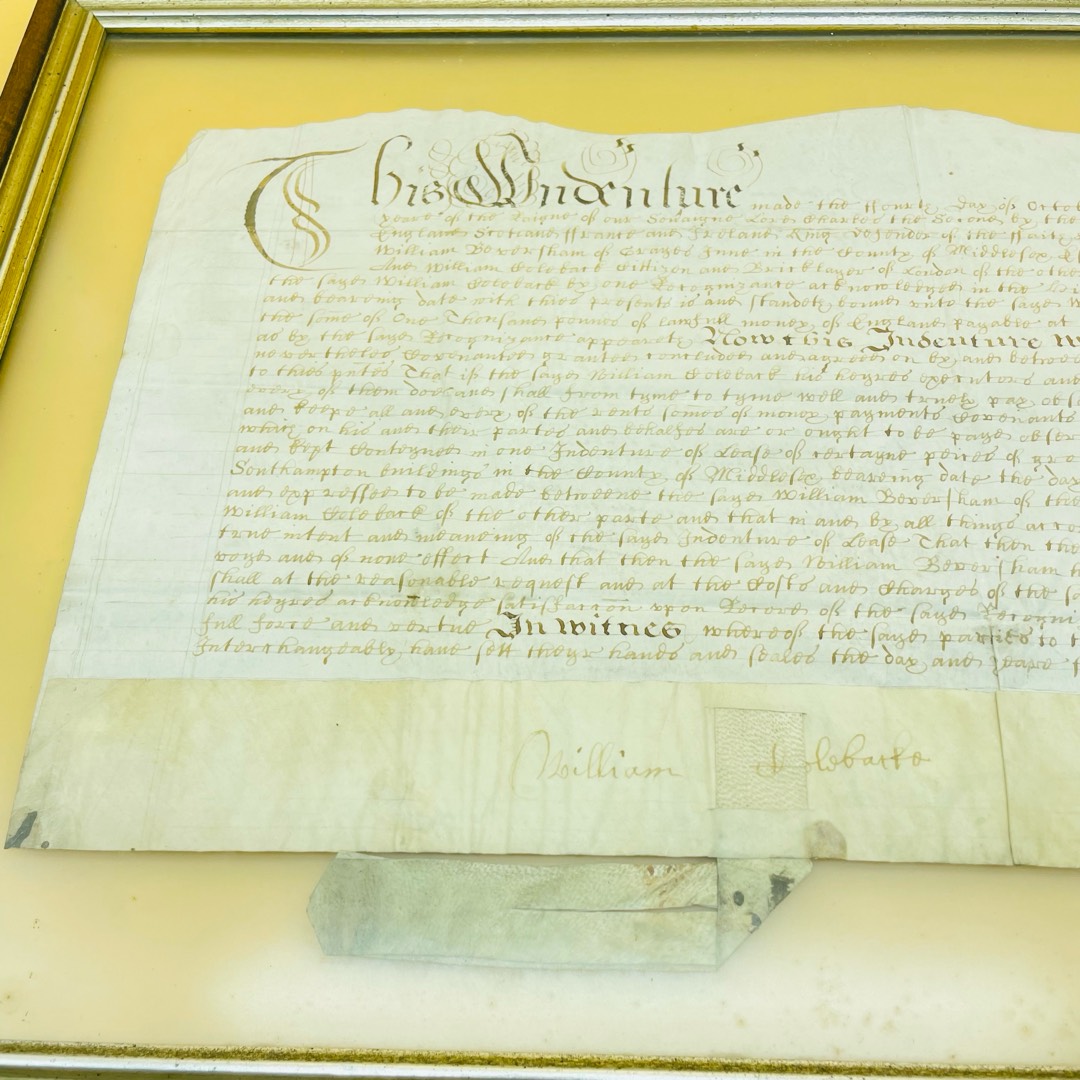 This Indenture made the ffourth day of Octob
yeare of the Raigne of our Soveraigne Lord Charles the Second by the
England Scotland ffrance and Ireland King defender of the ffaith
William Beversham of Grayes Inne in the County of Middlesex
And William Coleback Cittizen and Bricklayer of London of the other
the sayd William Coleback by one Recognizance acknowledged in the
and bearing date with theis presents is and standeth bound unto the sayd W
the some of One Thousand pounds of lawfull money of England payable at
as by the sayd Recognizance appeareth Now this Indenture w
nevertheles Covenanted granted concluded and agreed on by and betwee
to theis pntes That if the sayd William Coleback his heyres executors and
every of them doe and shall from tyme to tyme well and truely pay obse
and keepe all and every of the rents somes of money payments Covenants
which on his and their partes and behalfes are or ought to be payd obser
and kept Conteyned in one Indenture of Lease of certayne peices of gro
Southampton buildings in the County of Middlesex bearing date the day
and expressed to be made betweene the sayd William Beversham of the
William Coleback of the other parte and that in and by all things acco
true intent and meaneing of the sayd Indenture of Lease That then the
voyd and of none effect And that then the sayd William Beversham h
shall at the reasonable request and at the Costs and Charges of the sa
his heyres acknowledge satisfaccon upon Record of the sayd Recogni
full force and vertue In witnes whereof the sayd parties to t
Interchangeably have sett theyr hands and seales the day and yeare f
William Colebacke